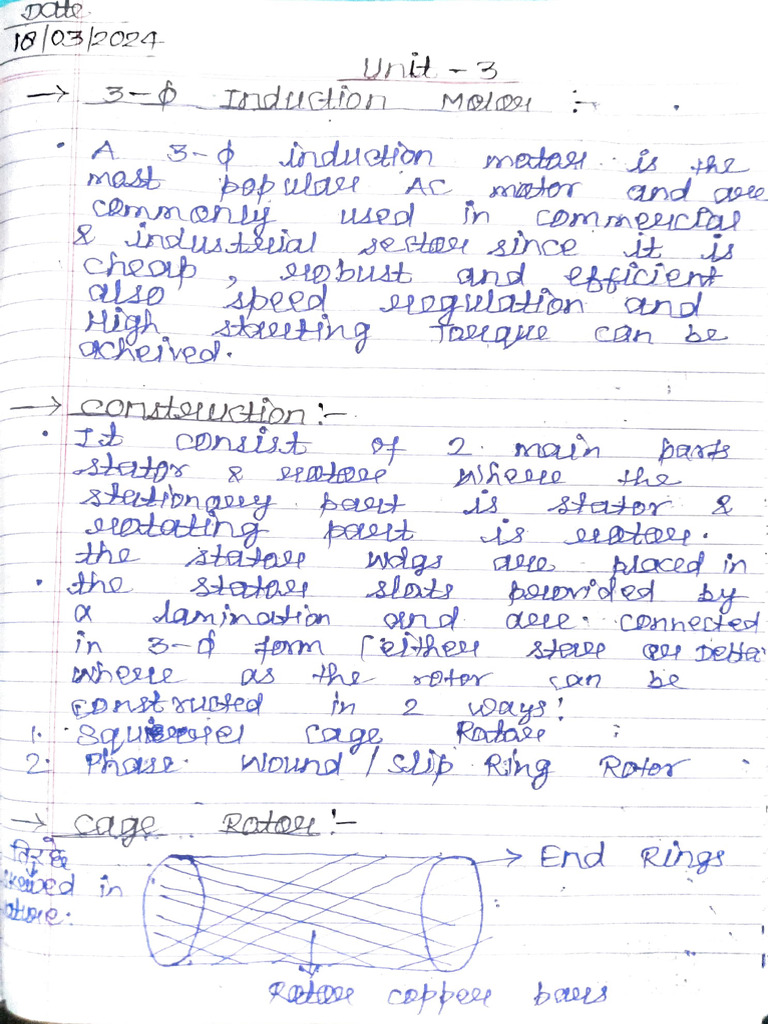 Date
18/03/2024
Unit - 3
→ 3-ϕ Induction Motor :-
• A 3-ϕ induction motor is the
most popular AC motor and are
commonly used in commercial
& industrial sector since it is
cheap, robust and efficient
also speed regulation and
High starting Torque can be
acheived.
→ Construction :-
• It consist of 2 main parts
stator & rotor where the
stationary part is stator &
rotating part is rotor.
the stator wdgs are placed in
• the stator slots provided by
a lamination and are connected
in 3-ϕ form [either star or Delta
where as the rotor can be
constructed in 2 ways!
1. Squirrel cage Rotor :
2. Phase wound / Slip Ring Rotor
→ Cage Rotor :-
→ End Rings
skewed in
nature.
Rotor copper bars